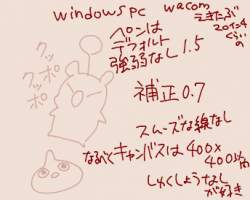 windows PC wacom
えきたぶ
20インチ
くらいの
ペンは
デフォルト
強弱なし 1.5
クッポ
クッポ
補正0.7
スムーズな線なし
なるべくキャンバスは400×
400以内
しゅくしょうなし
が好き